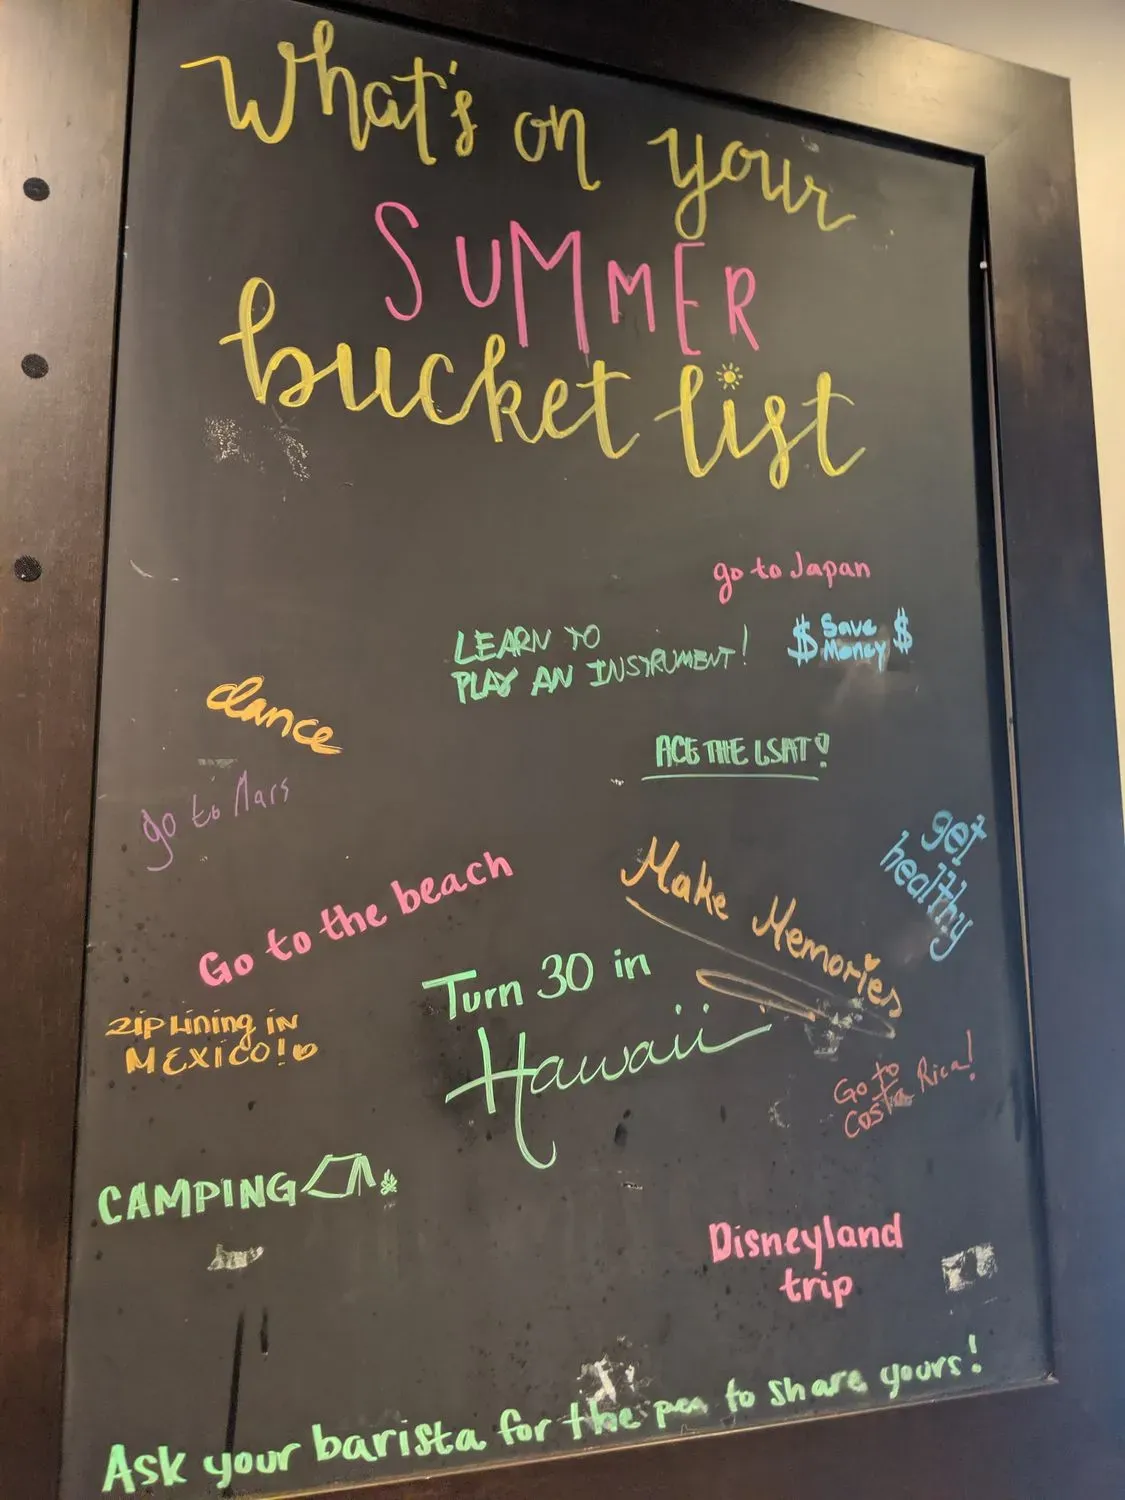 What's on your
SUMMER
bucket list
go to Japan
LEARN TO
PLAY AN INSTRUMENT!
$ Save $
Money
dance
ACE THE LSAT!
go to Mars
get
healthy
Make Memories
Go to the beach
Turn 30 in
Hawaii
Ziplining in
MEXICO!
Go to
Costa Rica!
CAMPING
Disneyland
trip
Ask your barista for the pen to share yours!